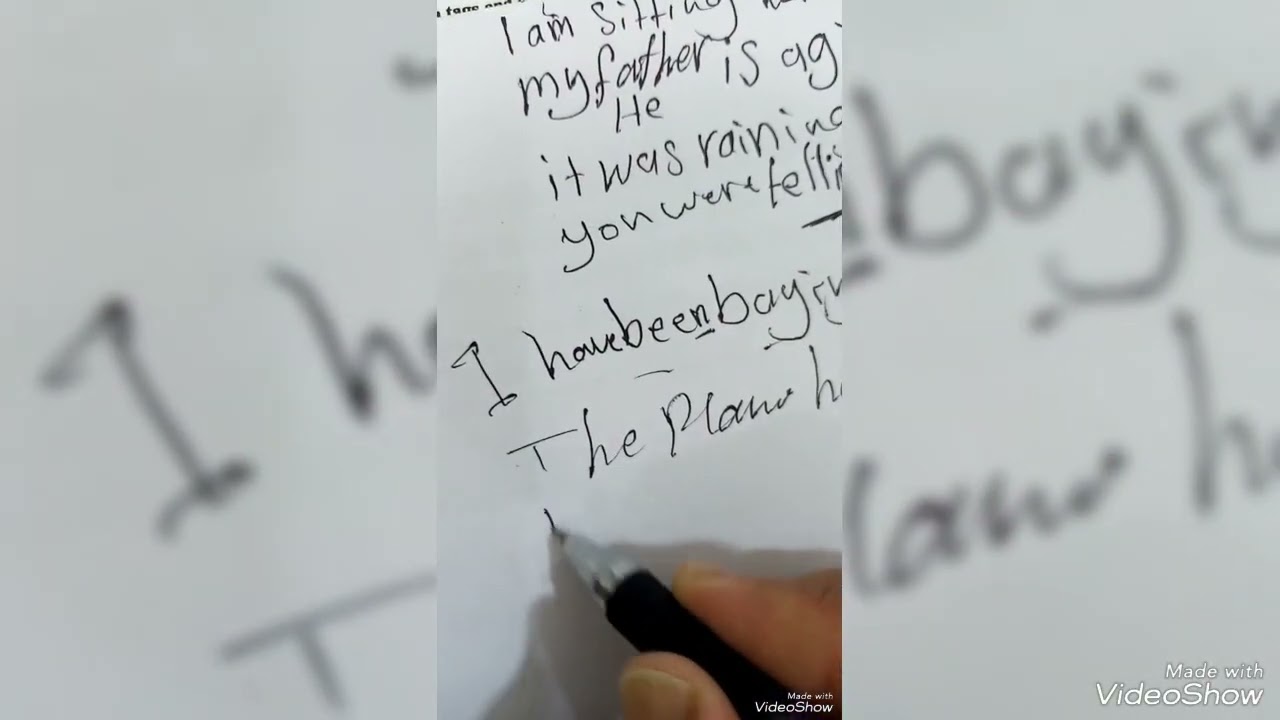 I am sitting
my father is ag
He
it was raining
you were telli
I have been bayin
The Plane h
Made with
VideoShow
Made with
VideoShow